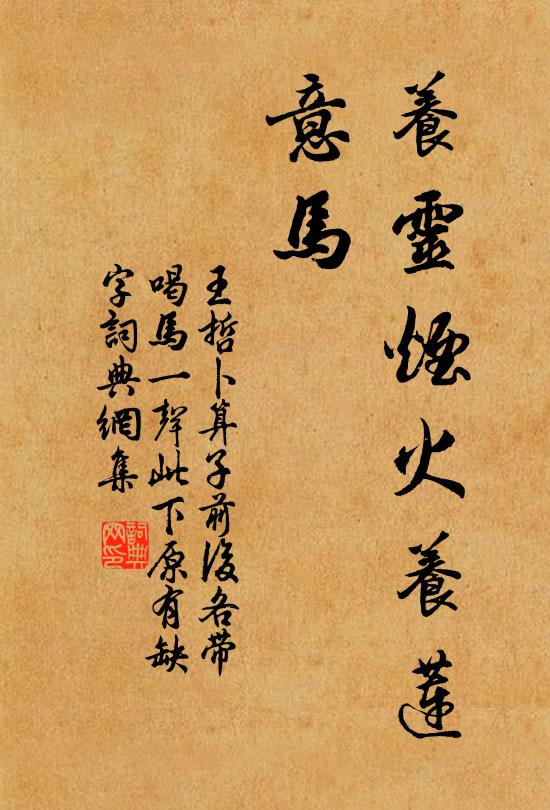 養靈煙火養蓮
意馬
王哲卜算子前後各帶
喝馬一聲此下原有缺
字詞典網集
詞典
网印